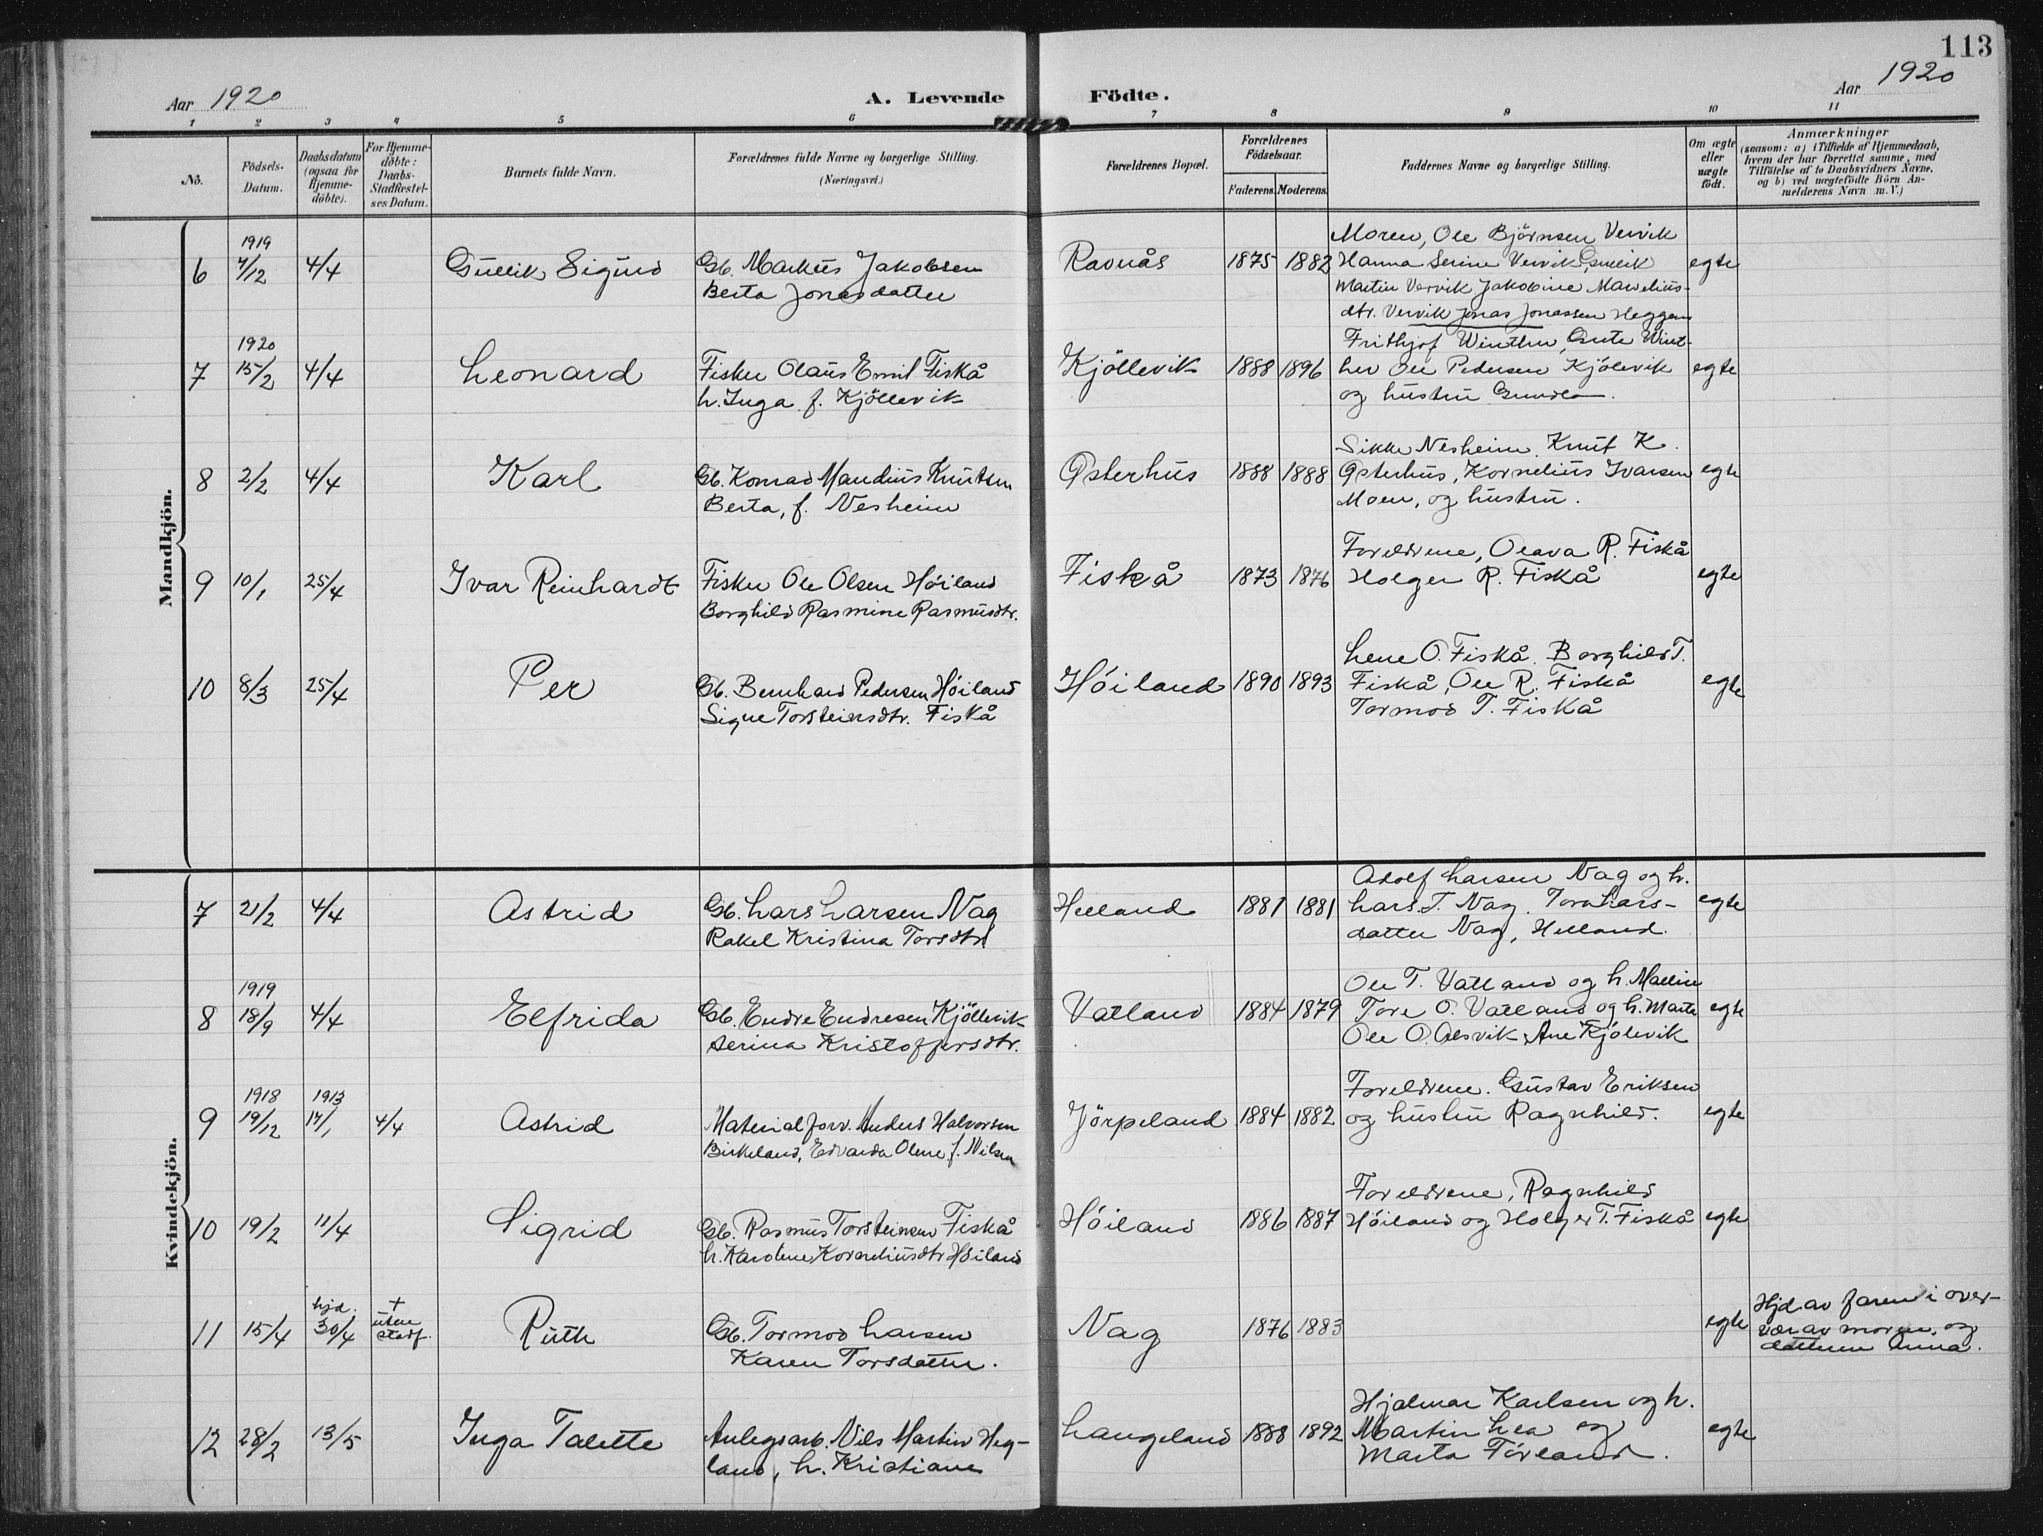 113
Aar 1920
A. Levende Födte.
Aar 1920
1 2 3 4 5 6 7 8 9 10 11
No.
Födsels-Datum.
Daabsdatum (ogsaa for Hjemme-döbte).
For Hjemme-döbte: Daabs-Stadfæstel-ses Datum.
Barnets fulde Navn.
Forældrenes fulde Navne og borgerlige Stilling.
(Næringsvei.)
Forældrenes Bopæl.
Forældrenes Födselsaar.
Faderens. Moderens.
Faddernes Navne og borgerlige Stilling.
Om ægte eller uægte födt.
Anmærkninger
(saasom: a) i Tilfælde af Hjemmedaab,
hvem der har forrettet samme, med
Tilföielse af to Daabsvidners Navne,
og b) ved uægtefödte Börn An-
melderens Navn m. V.)
Mandkjön.
1919
6 7/12 4/4 Gullik Sigurd Gb. Markus Jakobsen
Berta Jonasdatter
Ravnås 1875 1882
Moren, Ole Björnsen Vervik
Hanna Serine Vervik, Gullik
Martin Vervik Jakobine
dtr. Vervik Jonas Jonassen Heggem
egte
1920
7 15/2 4/4 Leonard Fisker Olaus Emil Fiskå
h. Inga f. Kjöllevik
Kjöllevik 1888 1896
Frithjof Winther, Gute Wint-
her Ole Pedersen Kjölevik
og hustru Gunda.
egte
8 2/2 4/4 Karl Gb. Konrad Mandius Knutsen
Berta, f. Nesheim
Østerhus 1888 1888
Sikke Nesheim. Knut K.
Østerhus, Kornelius Ivarsen
Moen, og hustru.
egte
9 10/1 25/4 Ivar Reinhardt Fisker Ole Olsen Höiland
Borghild Rasmine Rasmusdtr.
Fiskå 1873 1876
Foreldrene, Olava R. Fiskå
Holger R. Fiskå
egte
10 8/3 25/4 Per Gb. Bernhard Pedersen Höiland
Signe Torsteinsdtr. Fiskå
Höiland 1890 1893
Lene O. Fiskå. Borghild T.
Fiskå, Ole R. Fiskå
Tormod T. Fiskå
egte
Kvindekjön.
7 21/2 4/4 Astrid Gb. Lars Larsen Nag
Rakel Kristina Torsdtr.
Helland 1881 1881
Adolf Larsen Nag og h.
Lars T. Nag. Tora Lars-
datter Nag, Helland.
egte
1919
8 18/9 4/4 Elfrida Gb. Endre Endresen Kjöllevik
Serina Kristoffersdtr.
Vatland 1884 1879
Ole T. Vatland og h. Mallin
Tore O. Vatland og h. Marta
Ole O. Alsvik, Ane Kjölevik
egte
1918 1913
9 19/12 17/1 4/4 Astrid Materialforv. Anders Halvorsen
Birkeland, Edvarda Olene, f. Nilsen
Jörpeland 1884 1882
Foreldrene. Gustav Eriksen
og hustru Ragnhild.
egte
10 19/2 11/4 Sigrid Gb. Rasmus Torsteinsen Fiskå
h. Karolene Korneliusdtr Höiland
Höiland 1886 1887
Foreldrene, Ragnhild
Höiland og Holger T. Fiskå
egte
11 15/4 hjd. 30/4 + uten stadf. Ruth Gb. Tormod Larsen
Karen Torsdatter.
Nag 1876 1883
egte
Hjd. av faren i over-
vær av moren og
datteren Anna.
12 28/2 13/5 Inga Talette Anlegsarb. Nils Martin Heg-
land, h. Kristiane
Langeland 1888 1892
Hjalmar Karlsen og h.
Martin Lea og
Marta Förland.
egte